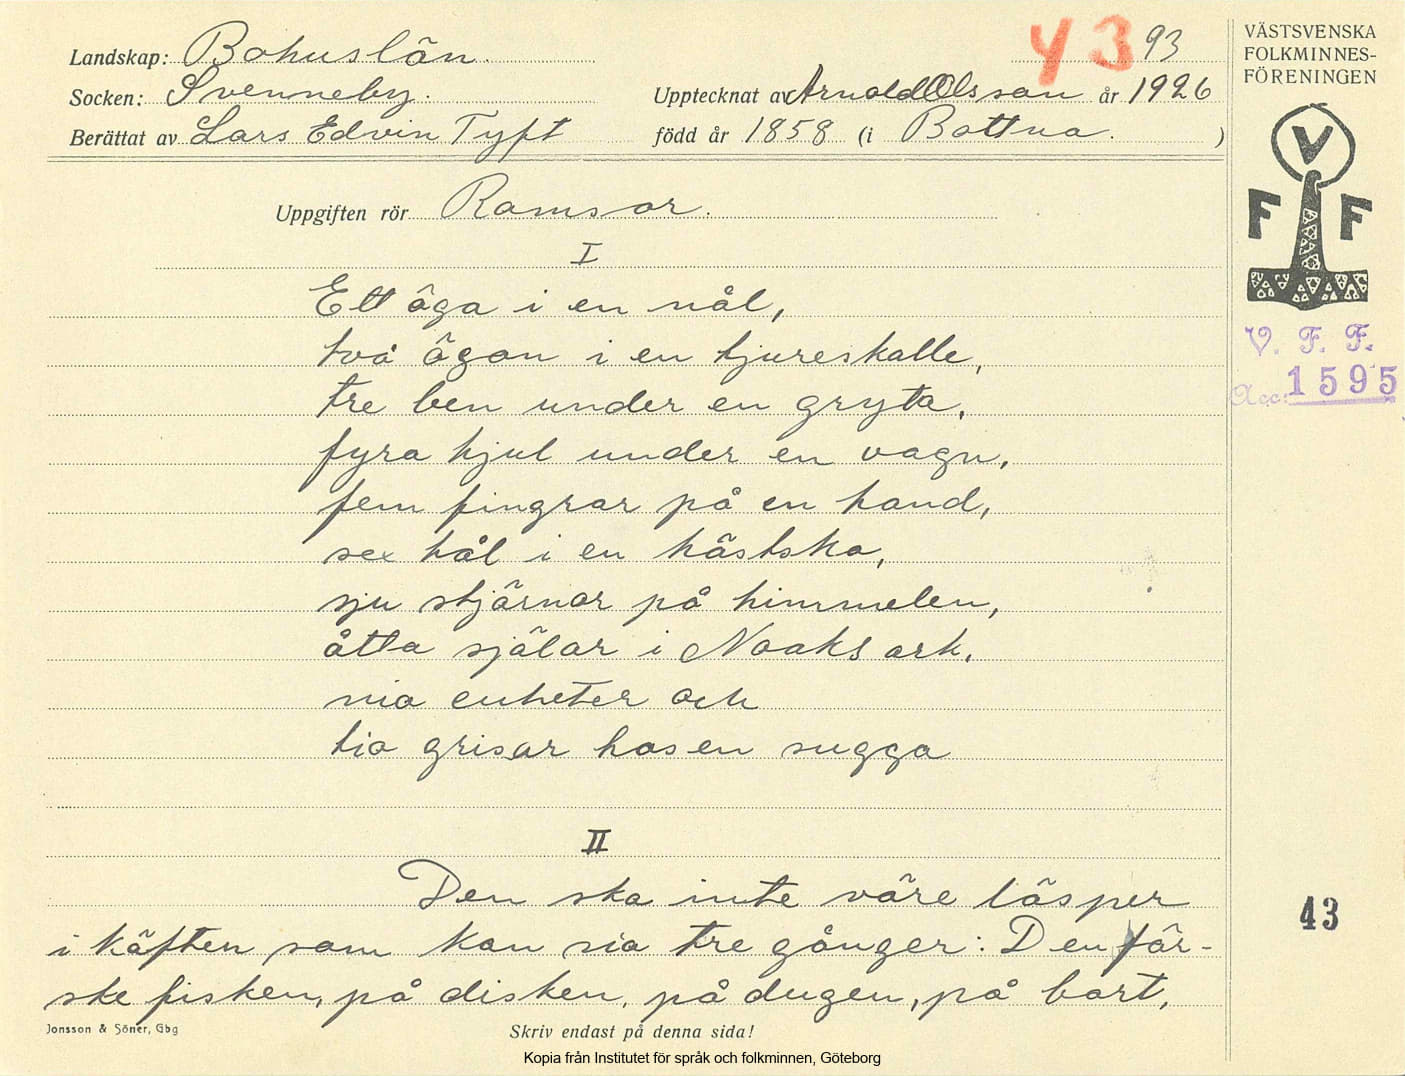 Landskap: Bohuslän.
43 93
Socken: Svenneby.
Upptecknat av Arnold Olsson år 1926
Berättat av Lars Edvin Tyft
född år 1858 (i Bottna. )
VÄSTSVENSKA
FOLKMINNES-
FÖRENINGEN
V
F F
V. F. F.
Acc: 1595
Uppgiften rör Ramsor.
I
Ett öga i en nål,
två ögon i en tjureskalle,
tre ben under en gryta,
fyra hjul under en vagn,
fem fingrar på en hand,
sex hål i en hästsko,
sju stjärnor på himmelen,
åtta själar i Noaks ark,
nio enheter och
tio grisar hos en sugga
II
Den ska inte väre läsper
i käften som kan sia tre gånger: Den fär-
ske fisken, på disken, på dugen, på bort,
43
Jonsson & Söner, Gbg
Skriv endast på denna sida!
Kopia från Institutet för språk och folkminnen, Göteborg